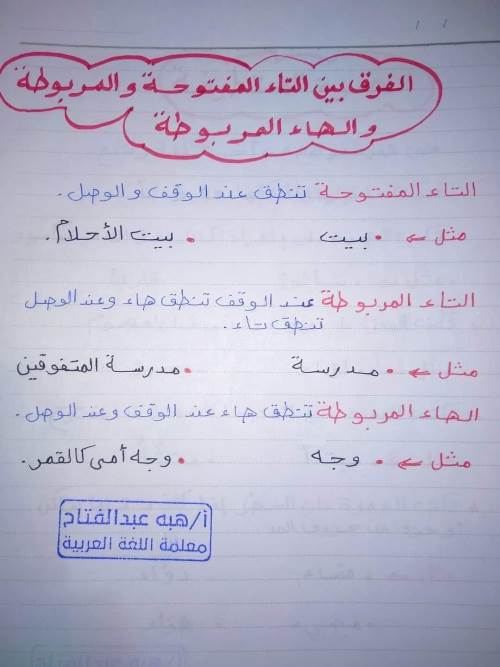 الفرق بين التاء المفتوحة والمربوطة
والهاء المربوطة
التاء المفتوحة تنطق عند الوقف والوصل.
مثل ← • بيت • بيت الأحلام.
التاء المربوطة عند الوقف تنطق هاء وعند الوصل
تنطق تاء.
مثل ← • مدرسة • مدرسة المتفوقين
الهاء المربوطة تنطق هاء عند الوقف وعند الوصل.
مثل ← • وجه • وجه أمى كالقمر.
أ/هبه عبدالفتاح
معلمة اللغة العربية